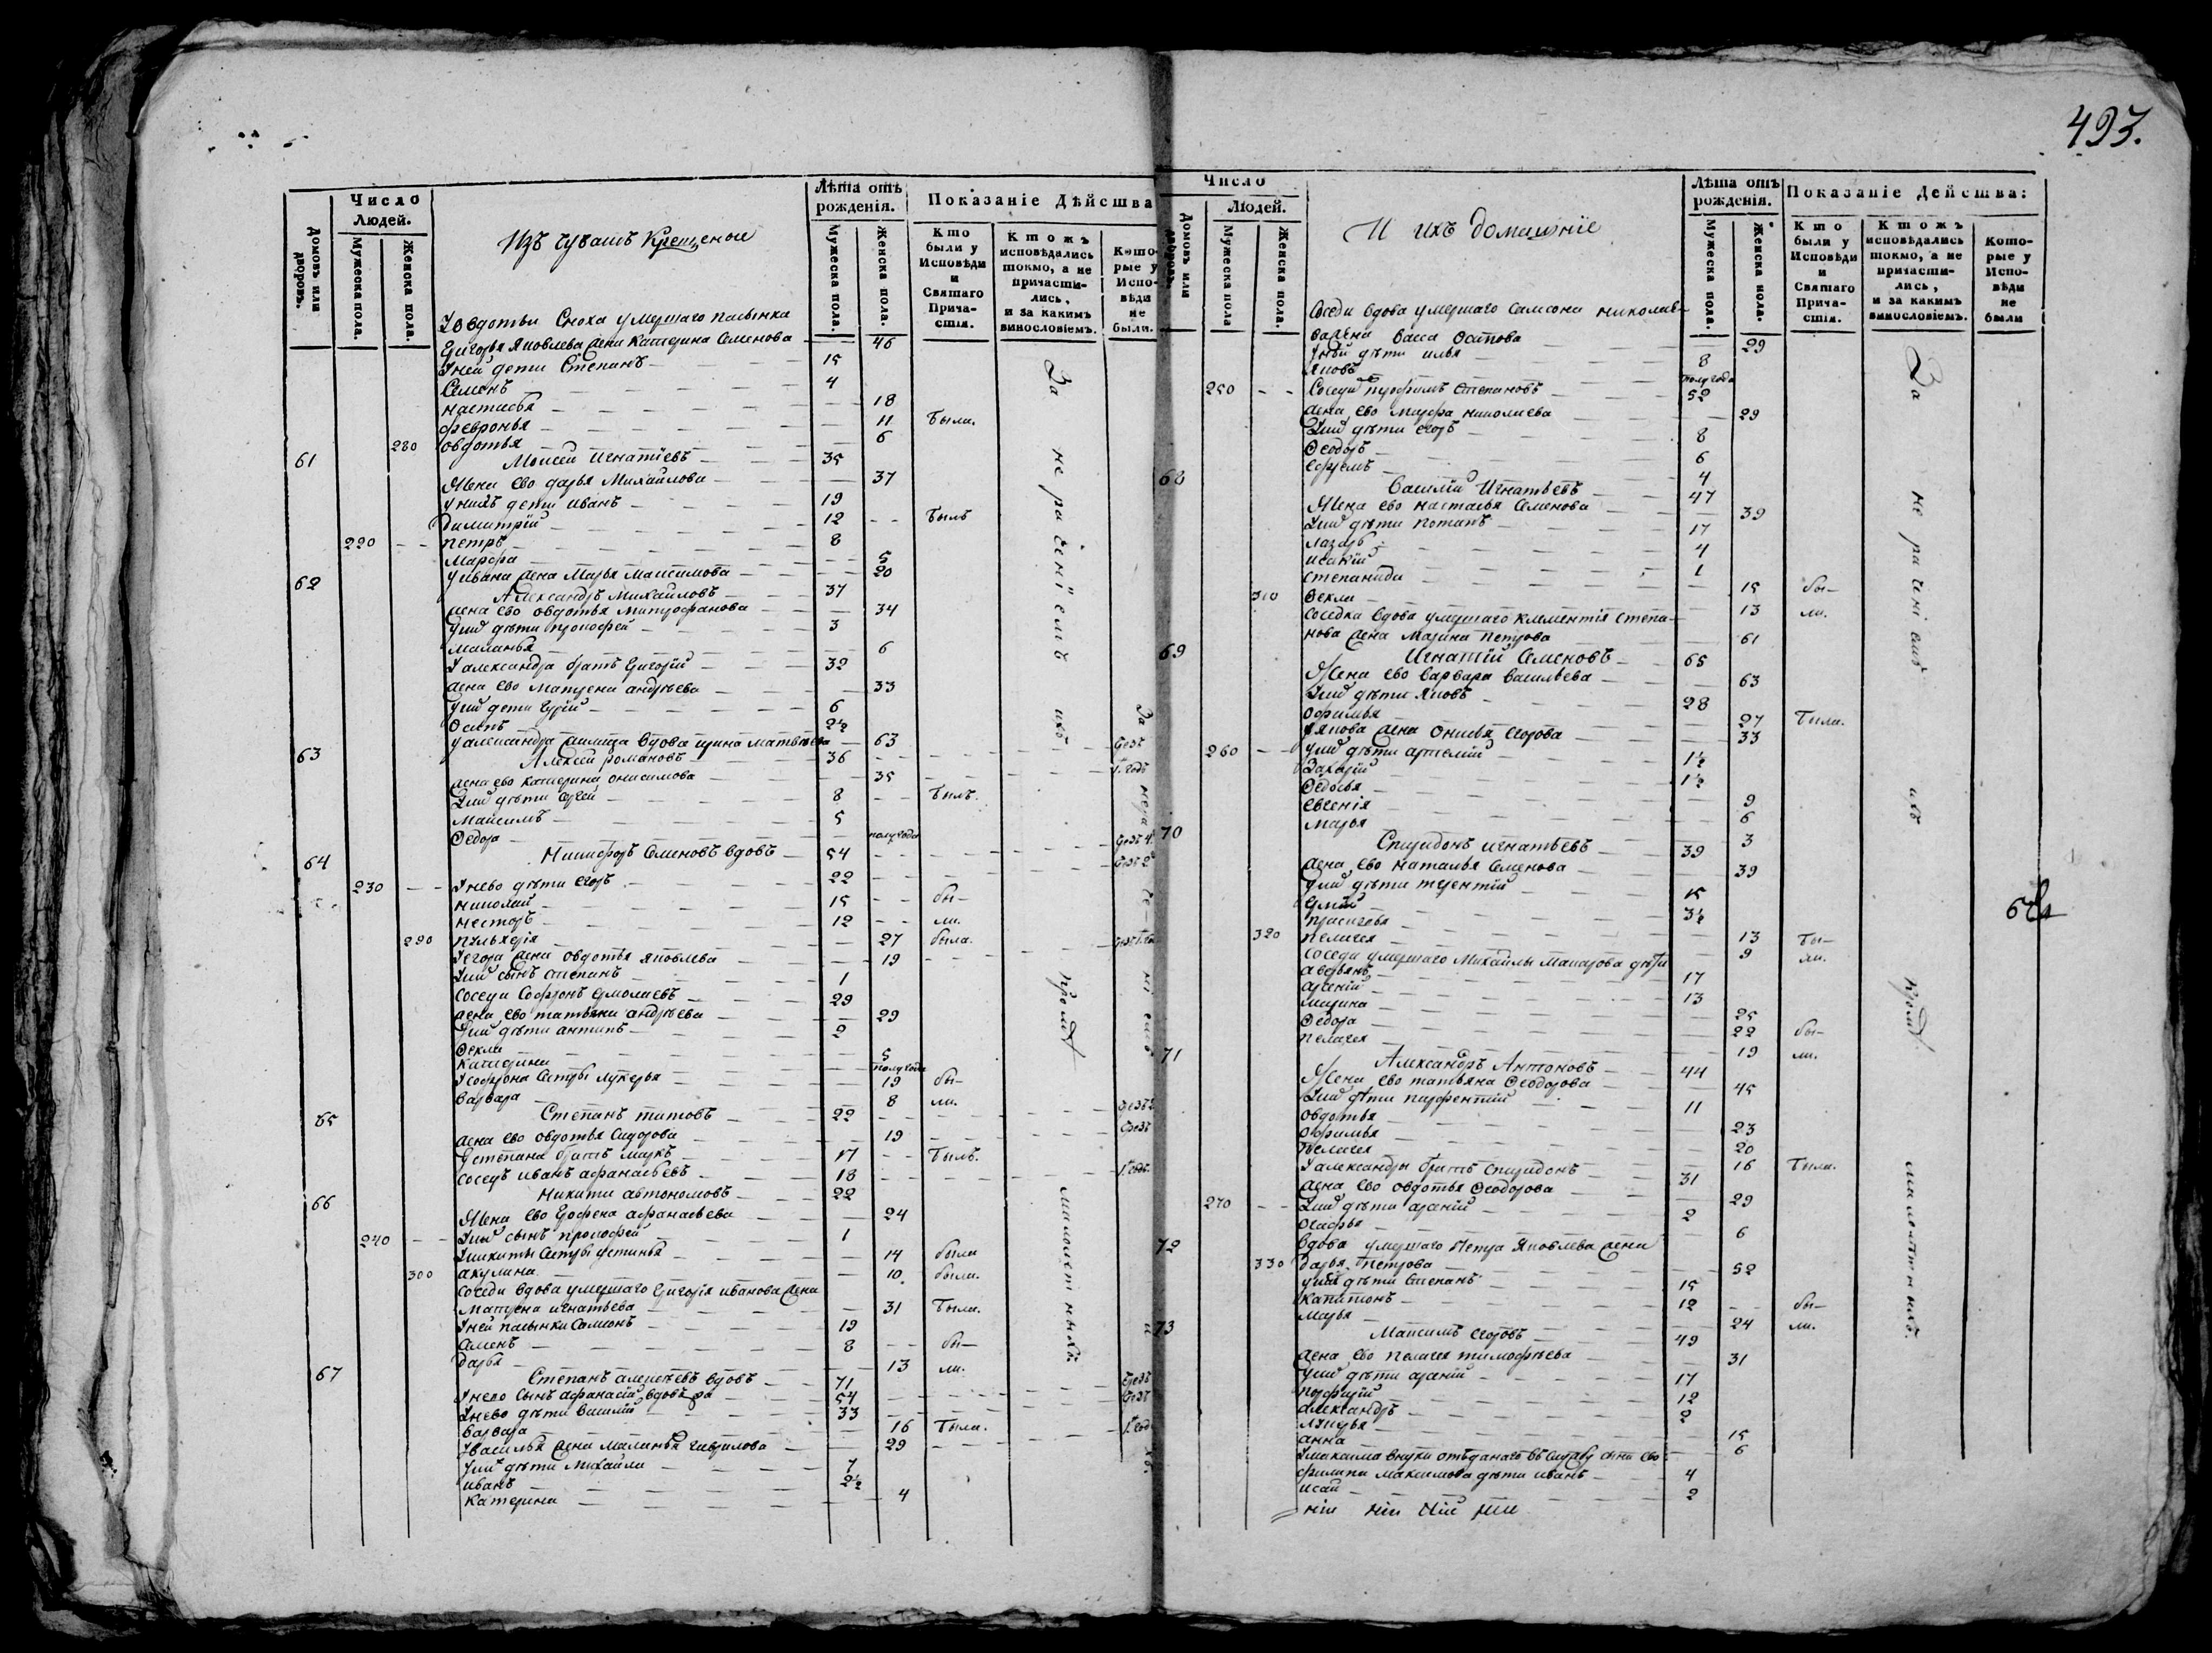 493.
Число
Людей.
Домовъ или дворовъ.
Мужеска пола.
Женска пола.
Изъ чувашъ крещеныи
Лѣта отъ рожденія.
Мужеска пола.
Женска пола.
Показаніе Дѣйства
Кто были у Исповѣди и Святаго Причастія.
Ктожъ исповѣдались токмо, а не причастились, и за какимъ винословіемъ.
Которые у Исповѣди не были.
У овдотьи сноха умершаго пасынка
Григорья Яковлева жена катерина Семенова 46
У ней дети Степанъ 15
Семенъ 4
настасья 18
февронья 11 были.
280 овдотья 6
61 Моисей Игнатіевъ 35
Жена ево дарья Михайлова 37
У нихъ дети иванъ 19
Димитрій 12 былъ
220 петръ 8
Марфа 5
У ивана жена Марья Максимова 20
62 Александръ Михайловъ 37
жена ево овдотья митрофанова 34
У них дѣти прокофей 3
маланья 6
У александра братъ григорій 32
жена ево матрена андрѣева 33
У них дети гурій 6
Осипъ 2½
У александра мачиха вдова ирина матвѣева 63
63 Алексей романовъ 36
жена ево катерина онисимова 35
У них дѣти сергей 8 былъ.
Максимъ 5
Ѳедора полугода
64 Никифоръ Семеновъ вдовъ 54
230 У нево дѣти егоръ 22
николай 15 бы–
несторъ 12 ли.
290 пульхерія 27 была.
У егора жена овдотья яковлева 19
У них сынъ степанъ 1
Соседи Софронъ ермолаевъ 29
жена ево татьяна андрѣева 29
У них дѣти антипъ 2
Ѳекла 5
Катерина полугода
У софрона сестры лукерья 19 бы–
варвара 8 ли.
65 Степанъ титовъ 22
жена ево овдотья Сидорова 19
У степана братъ маркъ 17 былъ.
соседъ иванъ афанасьевъ 18
66 Никита автономовъ 22
Жена ево Ерофена афанасьева 24
240 У них сынъ прокофей 1
У никиты сестры устинья 14 были
300 акулина 10. были.
Соседи вдова умершаго григорія иванова жена
матрена игнатьева 31 были.
У ней пасынки Самсонъ 19
Семенъ 8 бы–
Дарья 13 ли.
67 Степанъ алексѣевъ вдовъ 71
У нево сынъ афанасій вдовъ 54
У нево дѣти василій 33
варвара 16 была.
У василья жена маланья гаврилова 29
У них дѣти михайла 7
иванъ 2½
катерина 4
За не раченіемъ ихъ кромѣ малолетныхъ
Число
Домовъ или дворовъ.
Людей.
Мужеска пола
Женска пола.
И ихъ домашніе
Лѣта отъ рожденія.
Мужеска пола.
Женска пола.
Показаніе Дейсшва:
Кто были у Исповѣди и Святаго Причастія.
Ктожъ исповѣдались токмо, а не причастились, и за какимъ винословіемъ.
Которые у Исповѣди не были
Соседи вдова умершаго Самсона николаева
жена васса Осипова 29
У ней дѣти илья 8
Яковъ полугода
250 Соседи трофимъ Степановъ 52
жена ево марфа николаева 29
У них дѣти егоръ 8
Ѳеодоръ 6
ефремъ 4
68 Василій Игнатьевъ 47
Жена ево настасья Семенова 39
У них дѣти потапъ 17
лазарь 4
исакій 1
степанида 15 бы–
310 Ѳекла 13 ли.
Соседка вдова умершаго климентія степа-
нова жена Марина Петрова 61
69 Игнатій Семеновъ 65
Жена ево варвара васильева 63
У них дѣти яковъ 28
офимья 27 были.
У якова жена онисья егорова 33
260 У них дѣти артемій 1½
Захарій 1½
Ѳедосья 9
евгенія 6
Марья 3
70 Спиридонъ игнатьевъ 39
жена ево наталья Семенова 39
У них дѣти терентій 15
3½
прасковья 13 бы–
320 пелагея 9 ли.
Соседи умершаго михайлы макарова дѣти
аверьянъ 17
арсеній 13
ирина 25
Ѳедора 22 бы–
пелагея 19 ли.
71 Александръ Антоновъ 44
Жена ево татьяна Ѳеодорова 45
У них дѣти парфентій 11
овдотья 23
офимья 20
пелагея 16 были.
У александры братъ спиридонъ 31
жена ево овдотья Ѳеодорова 29
270 У них дѣти арсеній 2
6
72 Вдова умершаго Петра Яковлева жена
330 Дарья Петрова 52
У ней дѣти Степанъ 15
капитонъ 12 бы–
марья 24 ли.
73 Максимъ егоровъ 49
жена ево пелагея тимофѣева 31
У них дѣти арсеній 17
порфирій 12
александръ 2
лукерья 15
анна 6
У максима внуки отъданаго въ службу сына ево
филипа максимова дѣти иванъ 4
исай 2
За не раченіемъ ихъ кромѣ малолетнихъ.